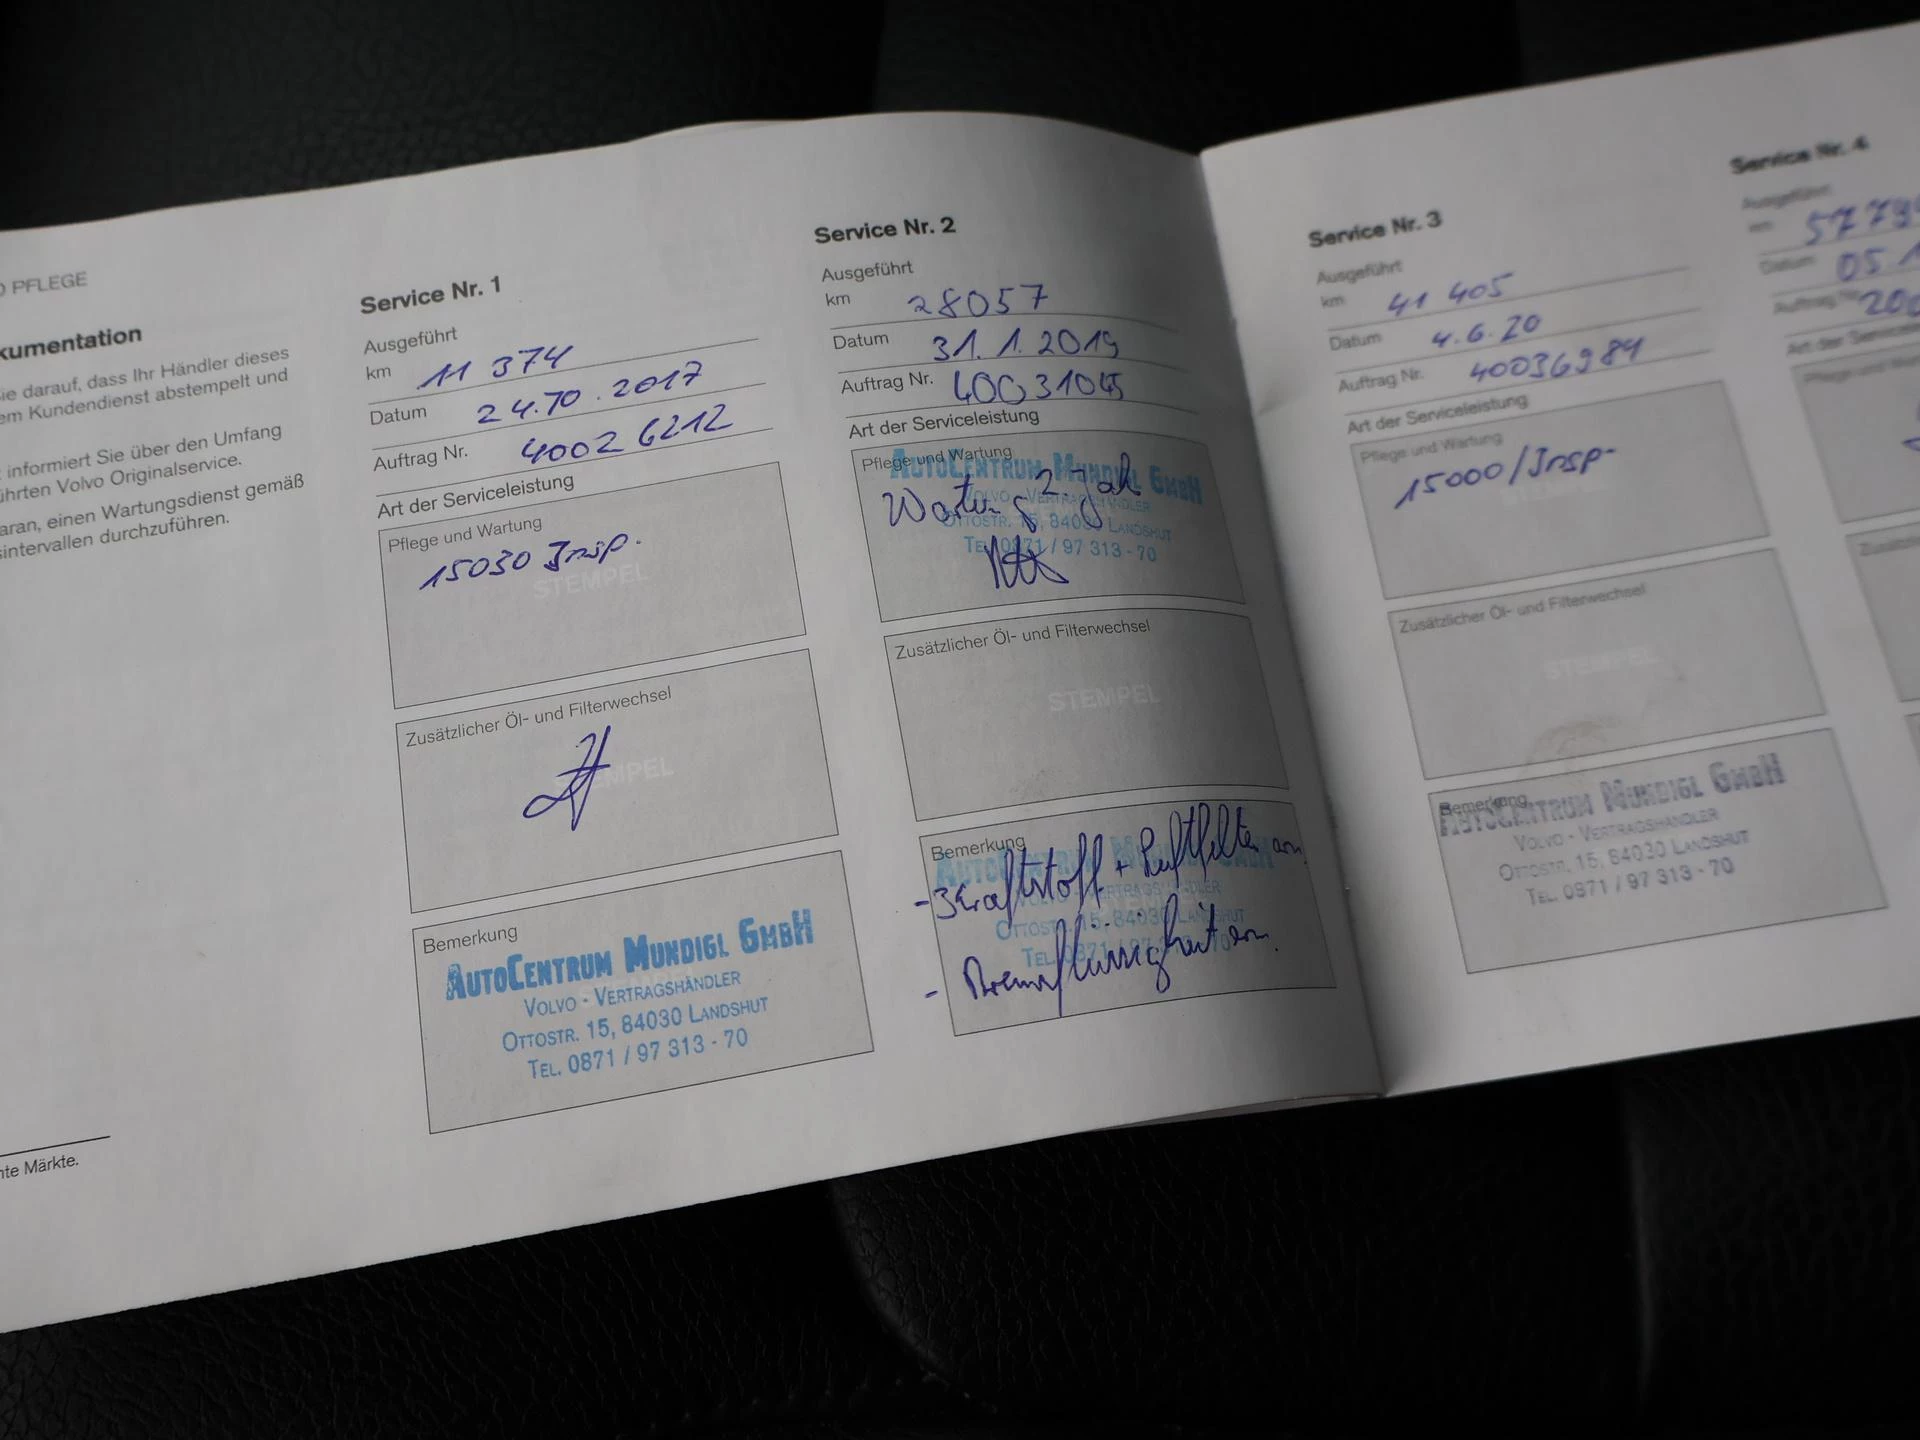 D PFLEGE
kumentation
ie darauf, dass Ihr Händler dieses
em Kundendienst abstempelt und
t informiert Sie über den Umfang
ührten Volvo Originalservice.
aran, einen Wartungsdienst gemäß
sintervallen durchzuführen.
nte Märkte.
Service Nr. 1
Ausgeführt
km 11 374
Datum 24.10.2017
Auftrag Nr. 4002 6212
Art der Serviceleistung
Pflege und Wartung
15030 Insp.
STEMPEL
Zusätzlicher Öl- und Filterwechsel
STEMPEL
Bemerkung
AUTOCENTRUM MUNDIGL GMBH
VOLVO - VERTRAGSHÄNDLER
OTTOSTR. 15, 84030 LANDSHUT
TEL. 0871 / 97 313 - 70
Service Nr. 2
Ausgeführt
km 28057
Datum 31.1.2019
Auftrag Nr. 40031045
Art der Serviceleistung
Pflege und Wartung
AUTOCENTRUM MUNDIGL GMBH
VOLVO - VERTRAGSHÄNDLER
OTTOSTR. 15, 84030 LANDSHUT
TEL. 0871 / 97 313 - 70
Wartung 2. Jah
Zusätzlicher Öl- und Filterwechsel
STEMPEL
Bemerkung
AUTOCENTRUM MUNDIGL GMBH
VOLVO - VERTRAGSHÄNDLER
OTTOSTR. 15, 84030 LANDSHUT
TEL. 0871 / 97 313 - 70
- Kraftstoff + Luftfilter ern.
- Bremsflüssigkeit ern.
Service Nr. 3
Ausgeführt
km 41 405
Datum 4.6.20
Auftrag Nr. 40036984
Art der Serviceleistung
Pflege und Wartung
15000/Insp.
Zusätzlicher Öl- und Filterwechsel
STEMPEL
Bemerkung
AUTOCENTRUM MUNDIGL GMBH
VOLVO - VERTRAGSHÄNDLER
OTTOSTR. 15, 84030 LANDSHUT
TEL. 0871 / 97 313 - 70
Service Nr. 4
Ausgeführt
km 5779
Datum 05.1
Auftrag Nr. 200
Art der Service
Pflege und Wa
Zusätzlic